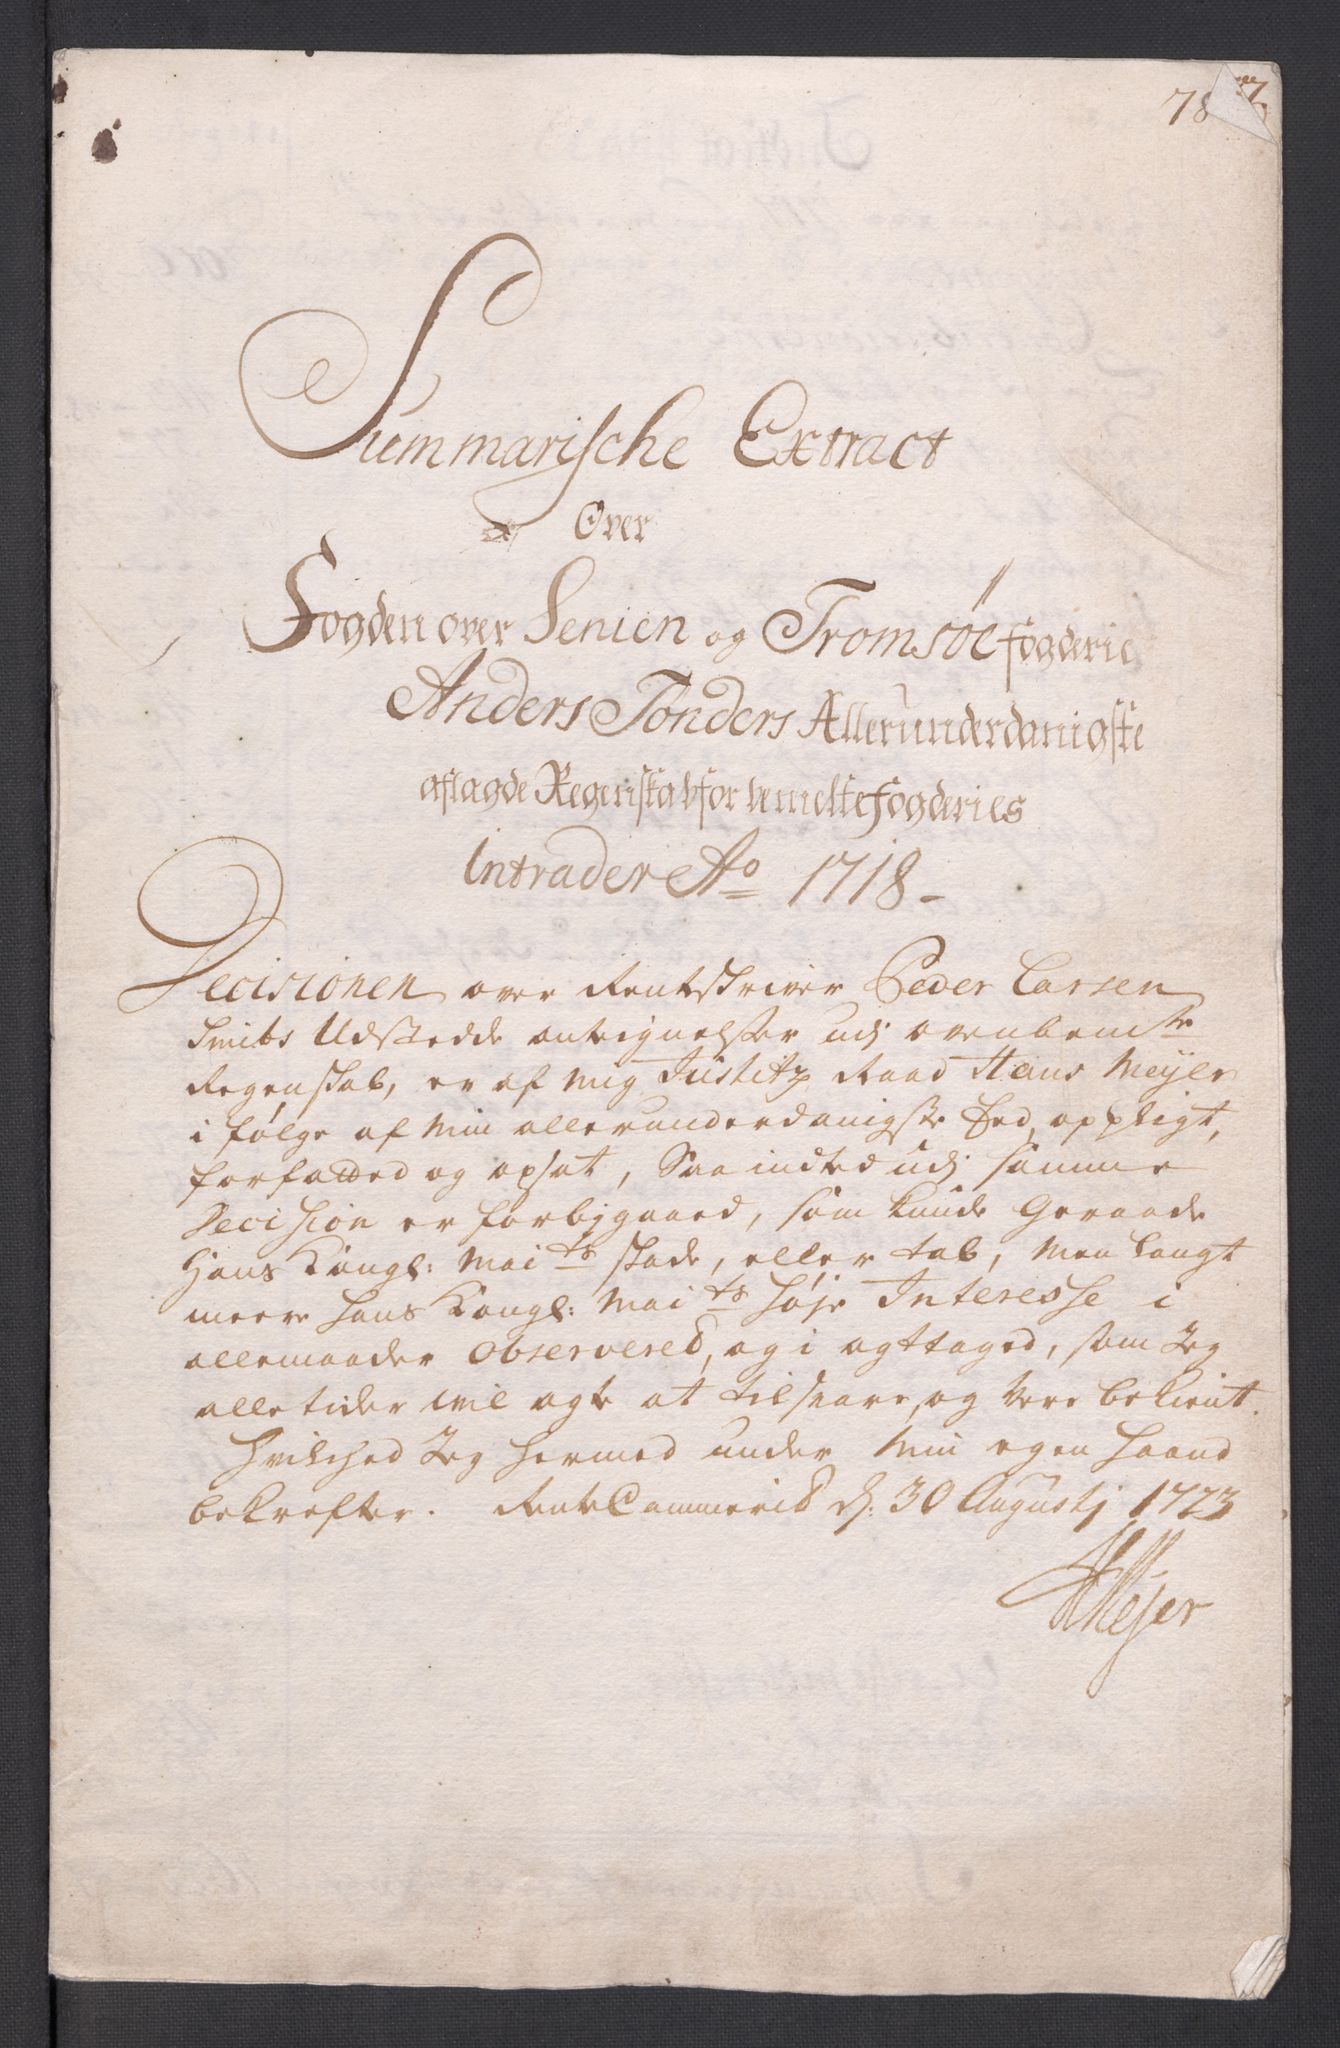 78
Summarische Extract
Over
Fogden over Senien og Tromsöe fogderie
Anders Tönders Allerunderdanigste
aflagde Regenskab for bemelte fogderies
Intrader Ao 1718
Decisionen over Rentskriver Peder Larsen
Smits Udstedde antegnelser udj ovenbemte
Regenskab, er af mig Justitz Raad Hans Meyer
i følge af min allerunderdanigste Eed, og pligt,
forfatted og opsat, Saa indted udj samme
Decision er forbjgaaed, som kunde Geraade
Hans Kongl: Maits skade, eller tab, men langt
meere hans Kongl: Maits høje Interesse i
allemaader observered, og i agttaged, som Jeg
alle tider vil agte at tilsvare, og være bekient.
Hvilched Jeg hermed under Min egen haand
bekrefter. RenteCammerid d: 30 Augustj 1723
HMejer